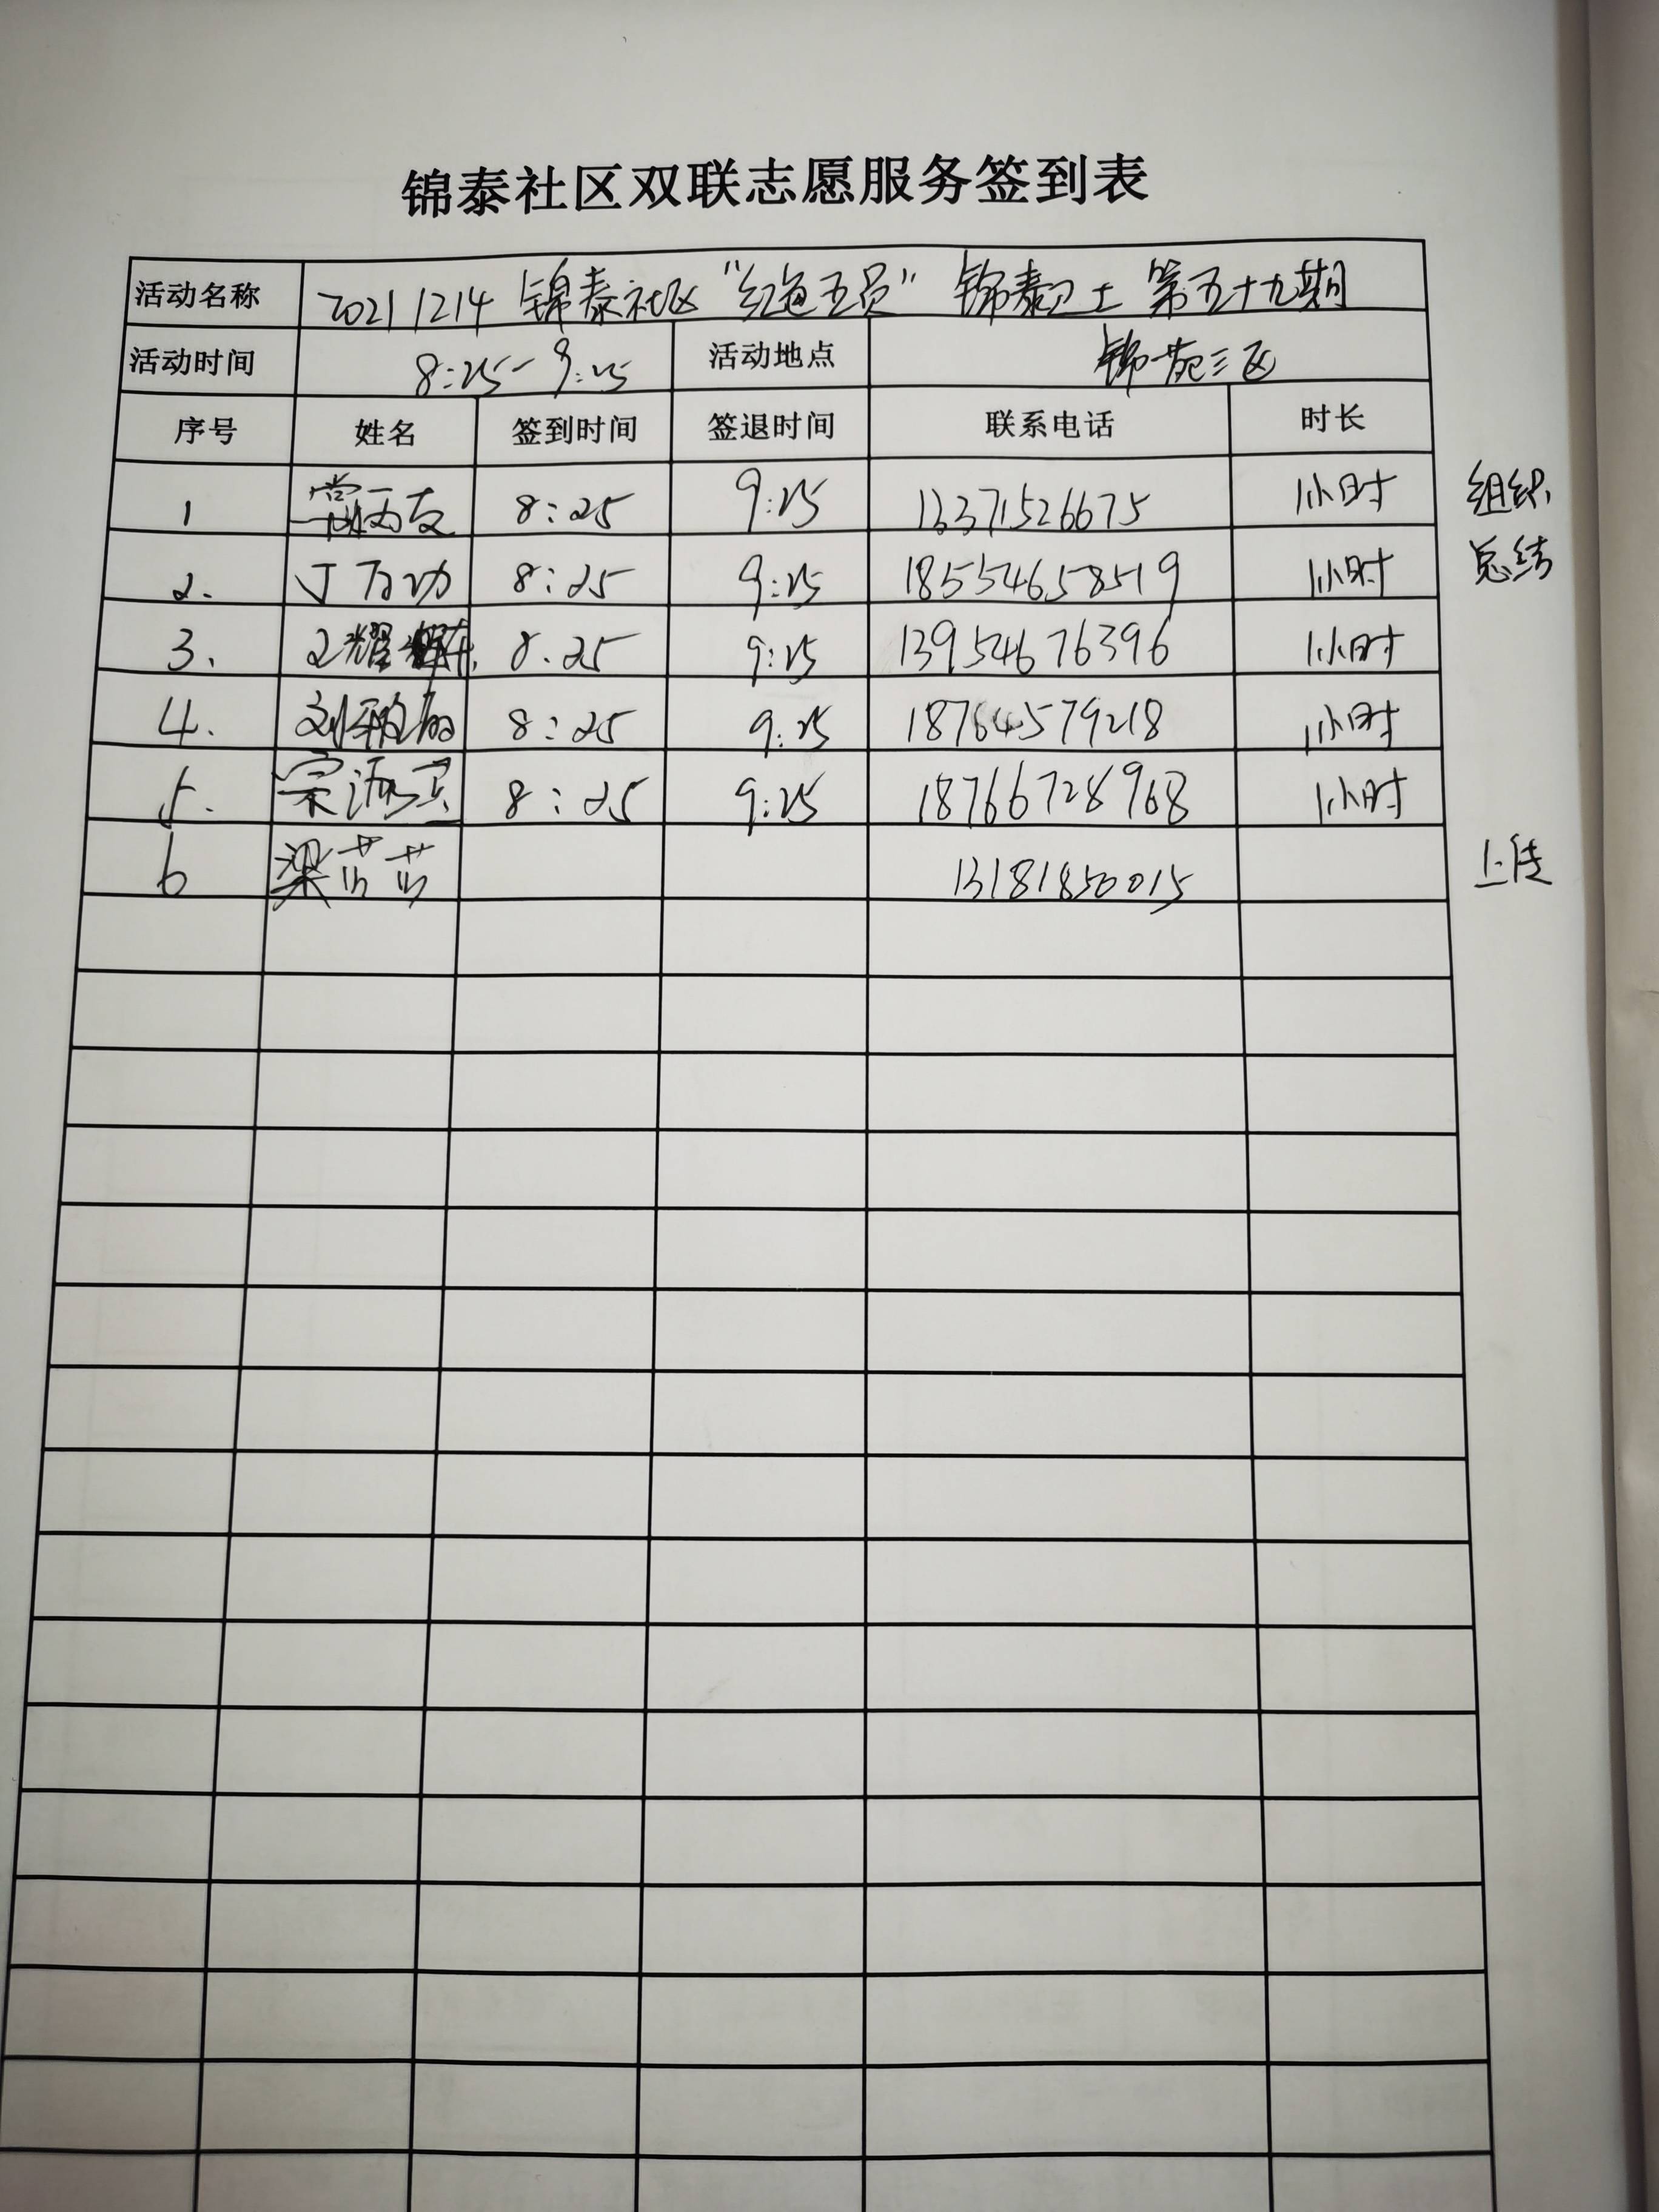 锦泰社区双联志愿服务签到表
活动名称 20211214 锦泰社区“红色五员” 锦泰卫士 第五十九期
活动时间 8:25-9:25 活动地点 锦苑三区
序号 姓名 签到时间 签退时间 联系电话 时长
1 8:25 9:25 13371526675 1小时 组织
总结
2. 丁万功 8:25 9:25 18554658519 1小时
3. 8.25 9:25 13954676396 1小时
4. 8:25 9:25 18764579218 1小时
5. 8:25 9:25 18766728968 1小时
6 梁芸芸 13181850015 上传